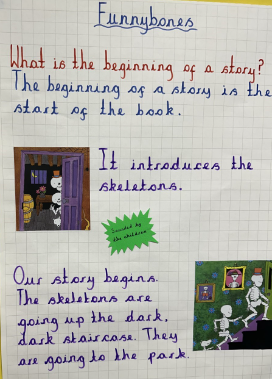 Funnybones
What is the beginning of a story?
The beginning of a story is the
start of the book.
It introduces the
skeletons.
Decided by
the children
Our story begins.
The skeletons are
going up the dark,
dark staircase. They
are going to the park.